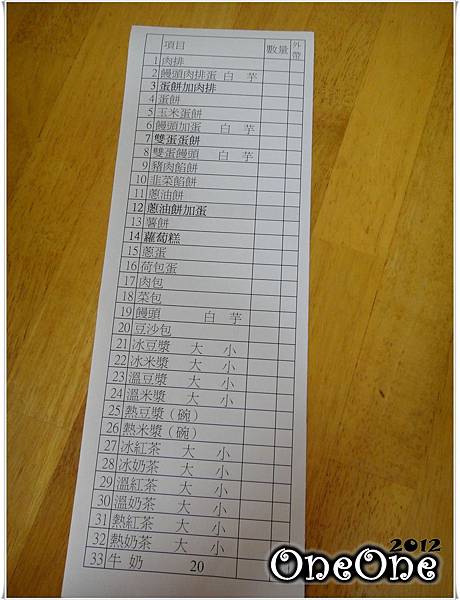 項目 數量 外帶
1 肉排
2 饅頭肉排蛋 白 芋
3 蛋餅加肉排
4 蛋餅
5 玉米蛋餅
6 饅頭加蛋 白 芋
7 雙蛋蛋餅
8 雙蛋饅頭 白 芋
9 豬肉餡餅
10 韭菜餡餅
11 蔥油餅
12 蔥油餅加蛋
13 薯餅
14 蘿蔔糕
15 蔥蛋
16 荷包蛋
17 肉包
18 菜包
19 饅頭 白 芋
20 豆沙包
21 冰豆漿 大 小
22 冰米漿 大 小
23 溫豆漿 大 小
24 溫米漿 大 小
25 熱豆漿（碗）
26 熱米漿（碗）
27 冰紅茶 大 小
28 冰奶茶 大 小
29 溫紅茶 大 小
30 溫奶茶 大 小
31 熱紅茶 大 小
32 熱奶茶 大 小
33 牛 奶 20
2012
OneOne